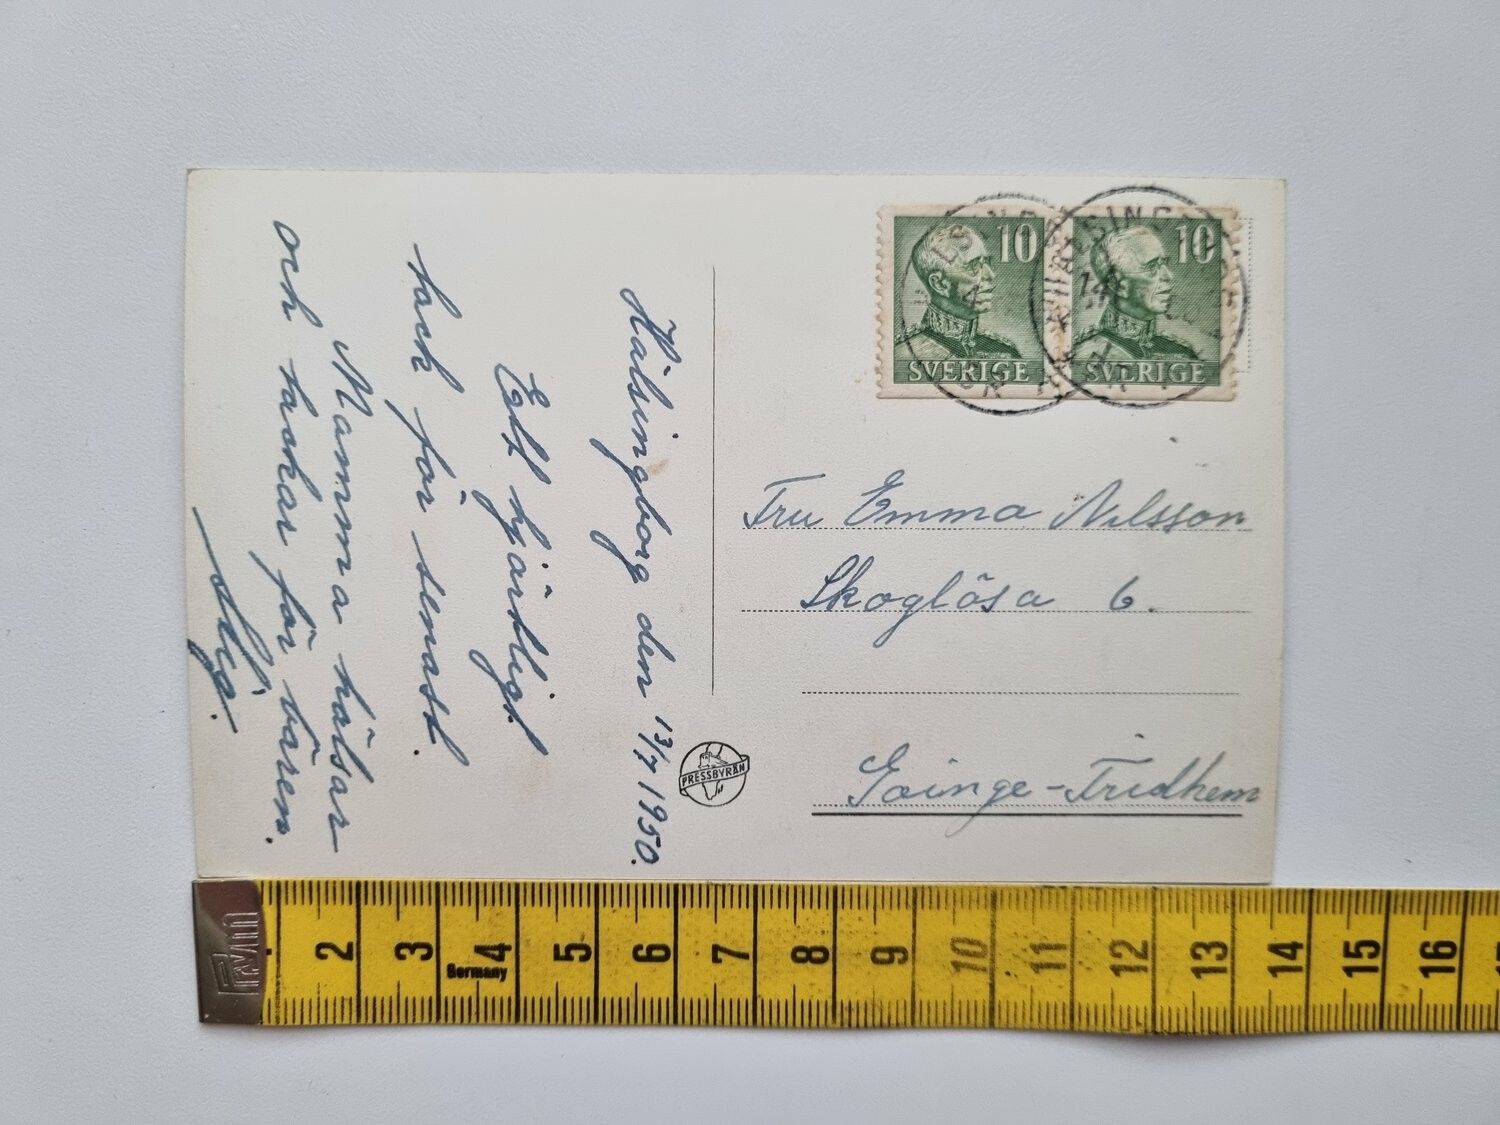 Hälsingborg den 13/7 1950.
Ett hjärtligt
tack för senast.
Mamma hälsar
och tackar för bären.
Stig.
PRESSBYRÅN
10 10
SVERIGE SVERIGE
14
Fru Emma Nilsson
Skoglösa 6.
Göinge-Fridhem
PWM
Germany
2 3 4 5 6 7 8 9 10 11 12 13 14 15 16